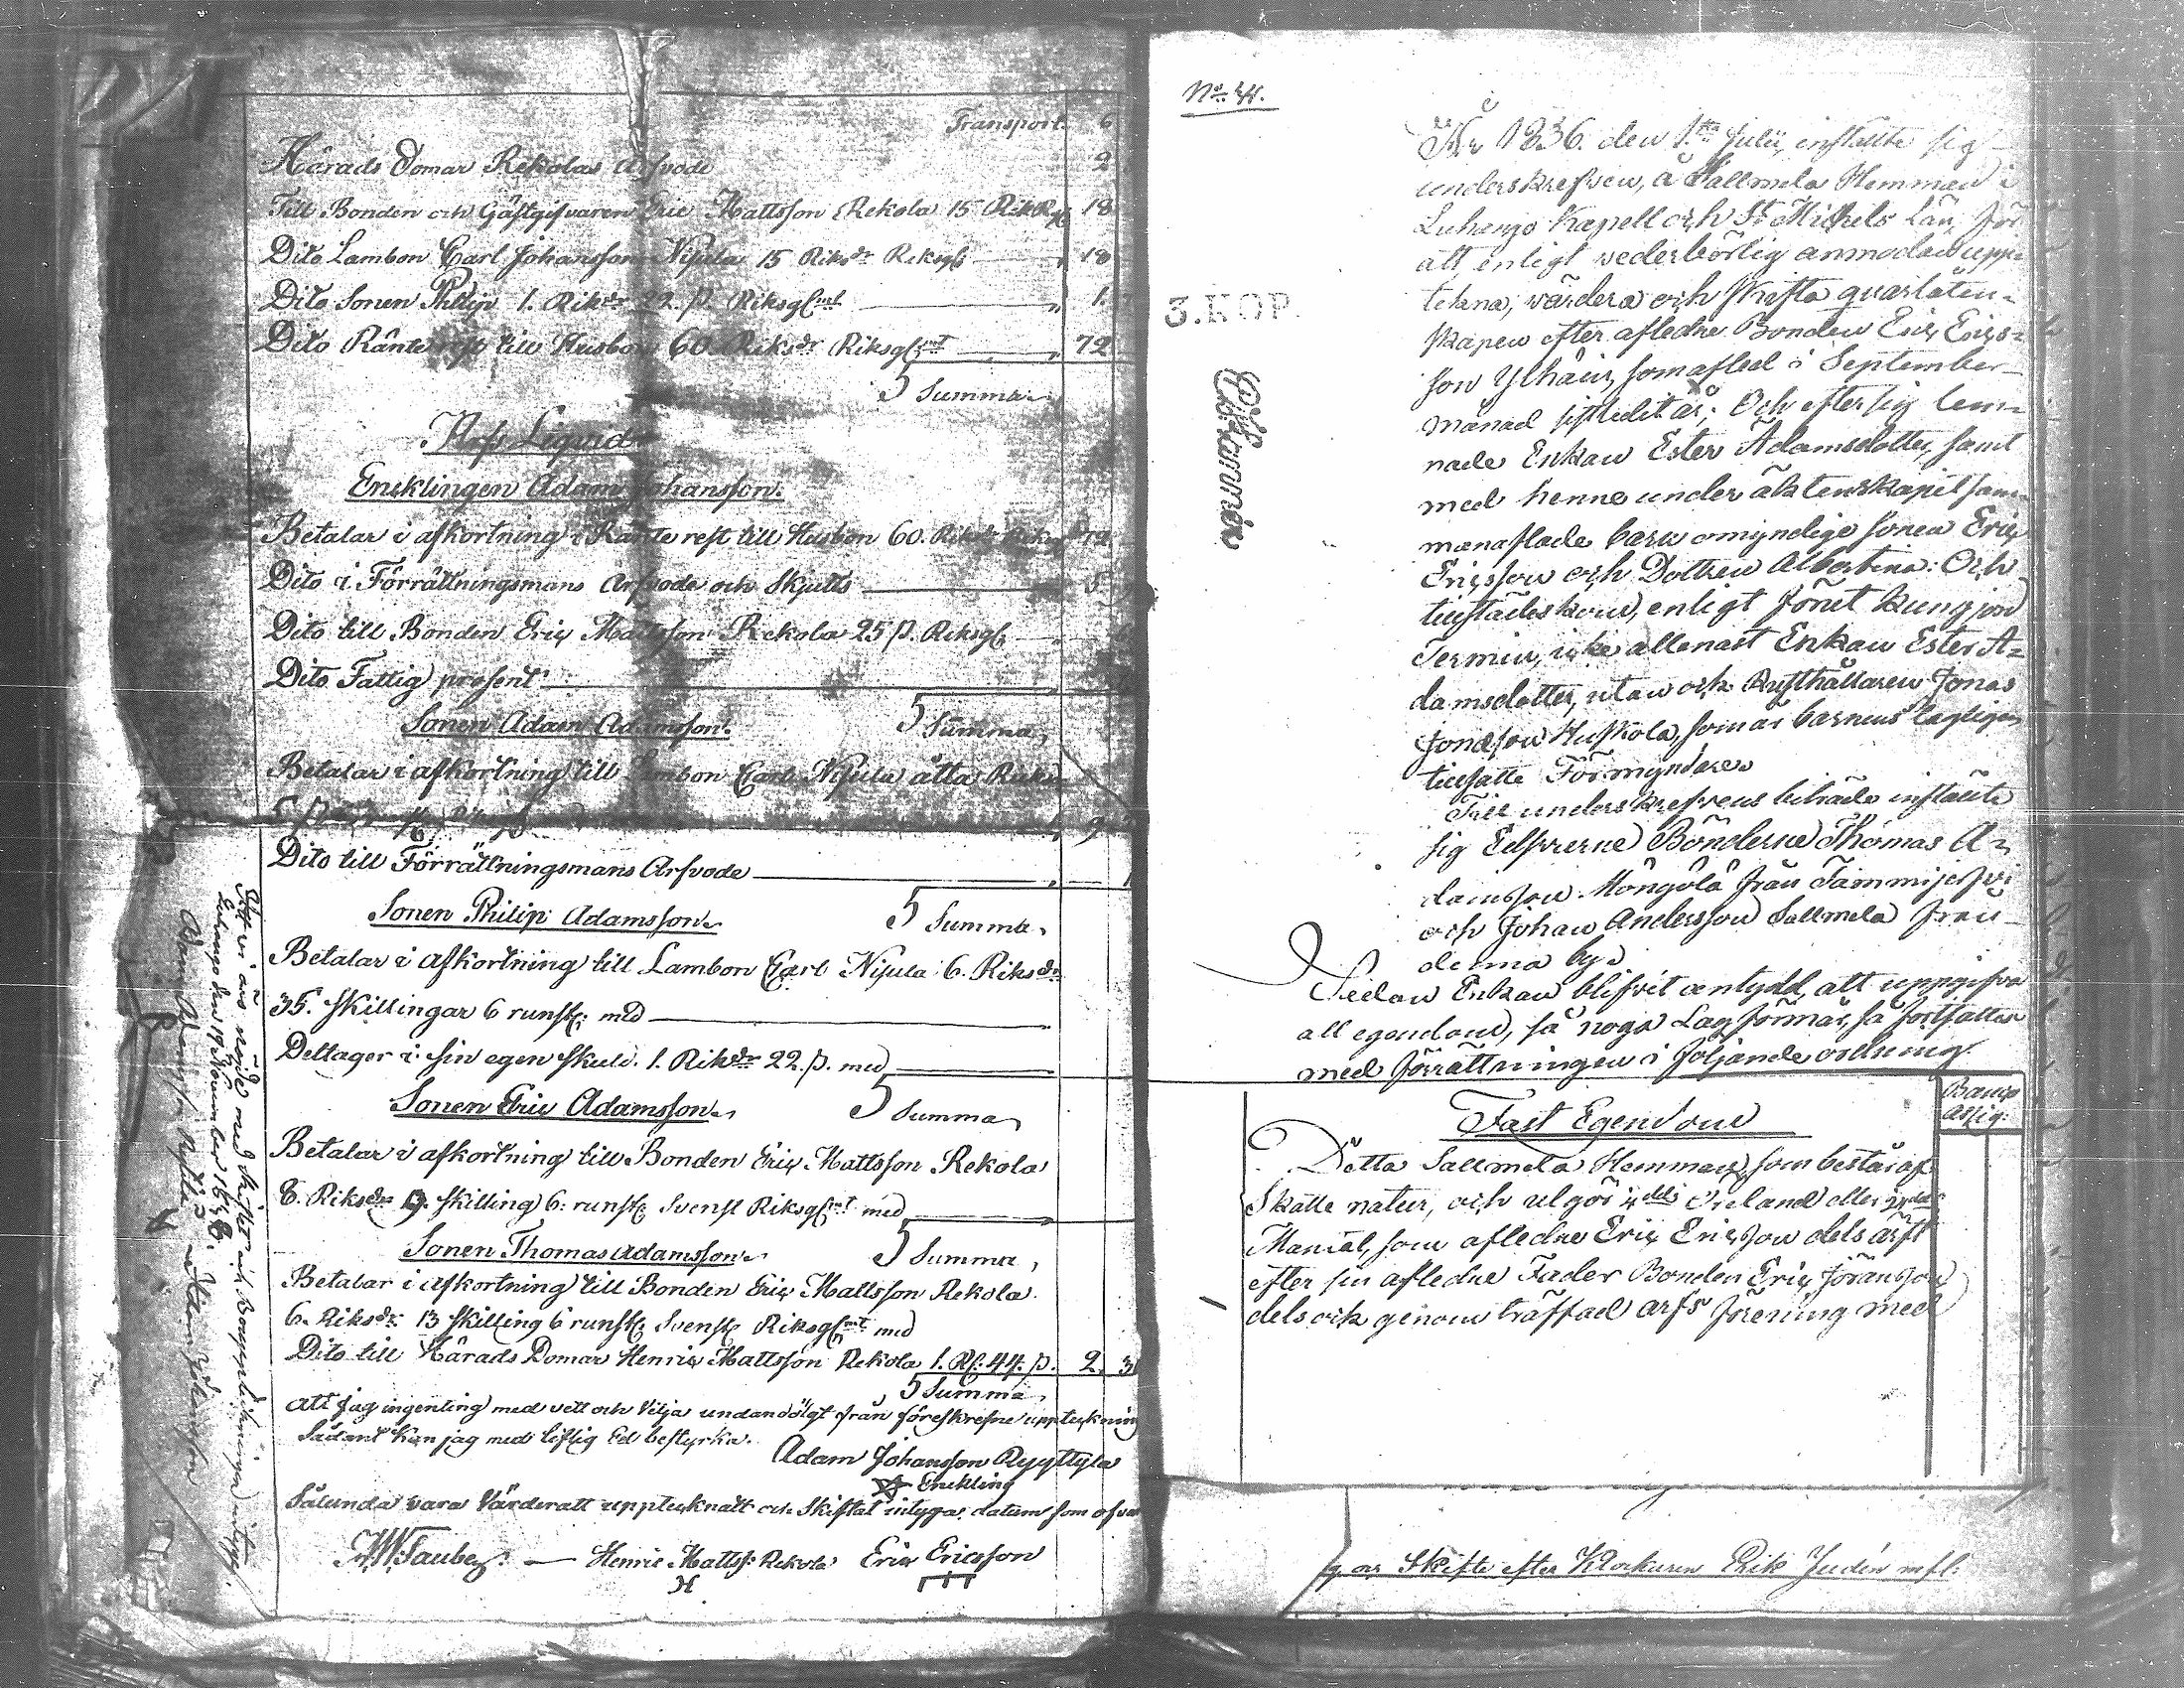 Transport. 6
Härads Domar Rekolas Arfvode 2
Till Bonden och Gästgifvaren Eric Mattsson Rekola 15 Rik 18
Dito Lambon Carl Johansson Nisula 15 Riksdr Riksg 18
Dito Sonen Philip 1. Rikdr 22. s. Riksglmt 1.
Dito Ränte rest till Husbon 60 Riksdr Riksglmt 72
Summa
Arfs Liquid
Encklingen Adam Johansson.
Betalar i afkortning i Ränte rest till Husbon 60. Riksdr 72
Dito i Förrättningsmans Arfvode och Skjutts 5
Dito till Bonden Eric Mattsson Rekola 25 s. Riksgl
Dito Fattig prosent
Sonen Adam Adamsson. Summa,
Betalar i afkortning till Lambon Carl Nisula åtta Riks
9
Dito till Förrättningsmans Arfvode
Sonen Philip Adamsson. Summa,
Betalar i afkortning till Lambon Carl Nisula 6. Riksdr
35. skillingar 6 runst; med
Deltager i sin egen skuld. 1. Rikdr 22. s. med
Sonen Eric Adamsson. Summa,
Betalar i afkortning till Bonden Eric Mattsson Rekola
6. Riksdr 13. skilling 6: runst; Svenst Riksglmt med
Sonen Thomas Adamsson. Summa,
Betalar i afkortning till Bonden Eric Mattsson Rekola.
6. Riksdr 13 skilling 6 runst; Svenst Riksglmt med
Dito till Härads Domar Henric Mattsson Rekola 1. Rs: 44. s. 2. 3
Summa,
att jag ingenting med vett och Vilja undandölgt från föreskrefne uppteckning
Sådant kan jag med liflig Ed bestyrka.
Adam Johansson Ryyttylä
Enckling
Sålunda vara Värderatt upptecknatt och Skiftat intygar datum som ofvan
Henric Matts: Rekola Eric Ericsson
Att vi äro nöjde med skiftet och Bouppteckningen intyga
Luhango den 19 November
Adam Johansson
No 44.
År 1836. den 1sta Julii, instälte sig
underskrefven, å Sallmela Hemman i
Luhango Kapell och St Michels Län, för
att, enligt vederbörlig anmodan upp-
tekna, värdera och skifta quarlåten-
skapen efter afledne Bonden Eric Erics-
son Ylhäin, som afled i September
månad sistledit år; Och efter sig lem-
nade Enkan Ester Adamsdotter, samt
med henne under äktenskapet sam-
manaflade barn omyndige sonen Eric
Ericsson och Dottren Albertina: Och
tillstädeskom, enligt förut kungjord
Termin, icke allenast Enkan Ester A-
damsdotter, utan ock Rusthållaren Jonas
Jonasson Huskola, som är barnens lagligen
tillsatte Förmyndare
Till underskrefvens biträde instälte
sig Edsvurne Bönderne Thomas A-
damsson Möngölä från Tammijerfvi
och Johan Andersson Sallmela från
denna by.
Sedan Enkan blifvit antydd, att uppgifva
all egendom, så noga Lag förmår, så fortsattes
med förrättningen i följande ordning.
3. KOP.
Fast Egendom
Banco
assig.
Detta Sallmela Hemman, som består af
Skatte natur, och utgör
Mantal, som afledne Eric Ericsson dels ärft
efter sin afledne Fader Bonden Eric Jöransson
dels ock genom träffad arfs förening med
Skifte efter Klockaren Erik Judén mfl.